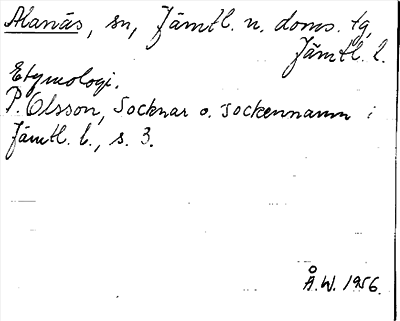 Alanäs, sn, Jämtl. n. doms. tg,
Jämtl. l.
Etymologi.
P. Olsson, Socknar o. sockennamn i
Jämtl. l., s. 3.
Å.W. 1956.